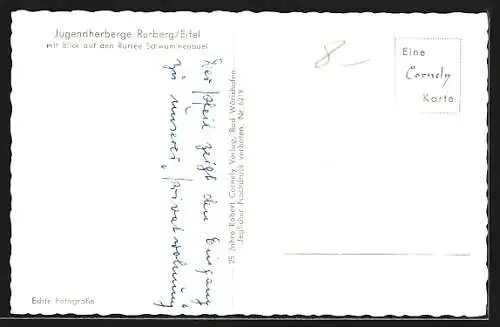 Jugendherberge Rurberg/Eifel
mit Blick auf den Rursee Schwammenauel
8—
Eine
Cornely
Karte
Der Pfeil zeigt den Eingang
zu unserer „Privatwohnung"
25 Jahre Robert Cornely Verlag, Bad Wörishofen
Jeglicher Nachdruck verboten. Nr. 6219
Echte Fotografie